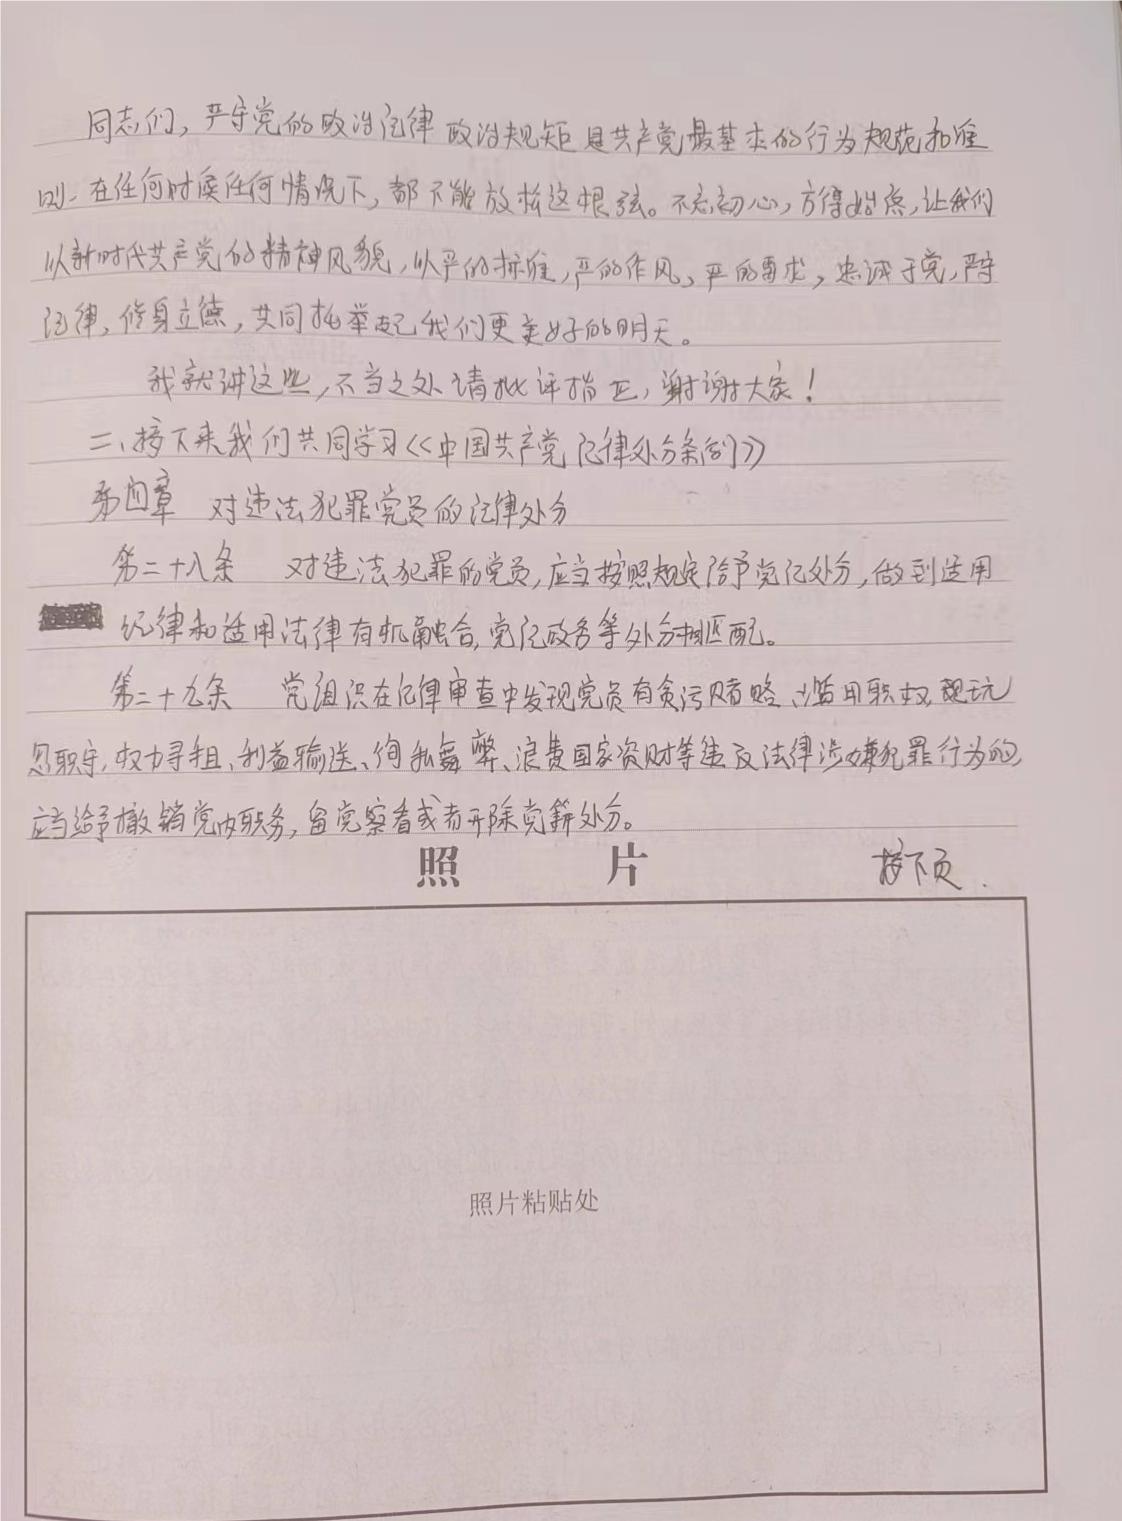 同志们，严守党的政治纪律政治规矩是共产党最基本的行为规范和准
则、在任何时候任何情况下，都不能放松这根弦。不忘初心，方得始终，让我们
以新时代共产党的精神风貌，以严的标准，严的作风，严的要求，忠诚于党，严守
纪律，修身立德，共同托举起我们更美好的明天。
我就讲这些，不当之处请批评指正，谢谢大家！
二、接下来我们共同学习《中国共产党纪律处分条例》
第四章 对违法犯罪党员的纪律处分
第二十八条 对违法犯罪的党员，应当按照规定给予党纪处分，做到适用
纪律和适用法律有机融合，党纪政务等处分相匹配。
第二十九条 党组织在纪律审查中发现党员有贪污贿赂、滥用职权、玩
忽职守、权力寻租、利益输送、徇私舞弊、浪费国家资财等违反法律涉嫌犯罪行为的，
应当给予撤销党内职务，留党察看或者开除党籍处分。
照 片
接下页.
照片粘贴处